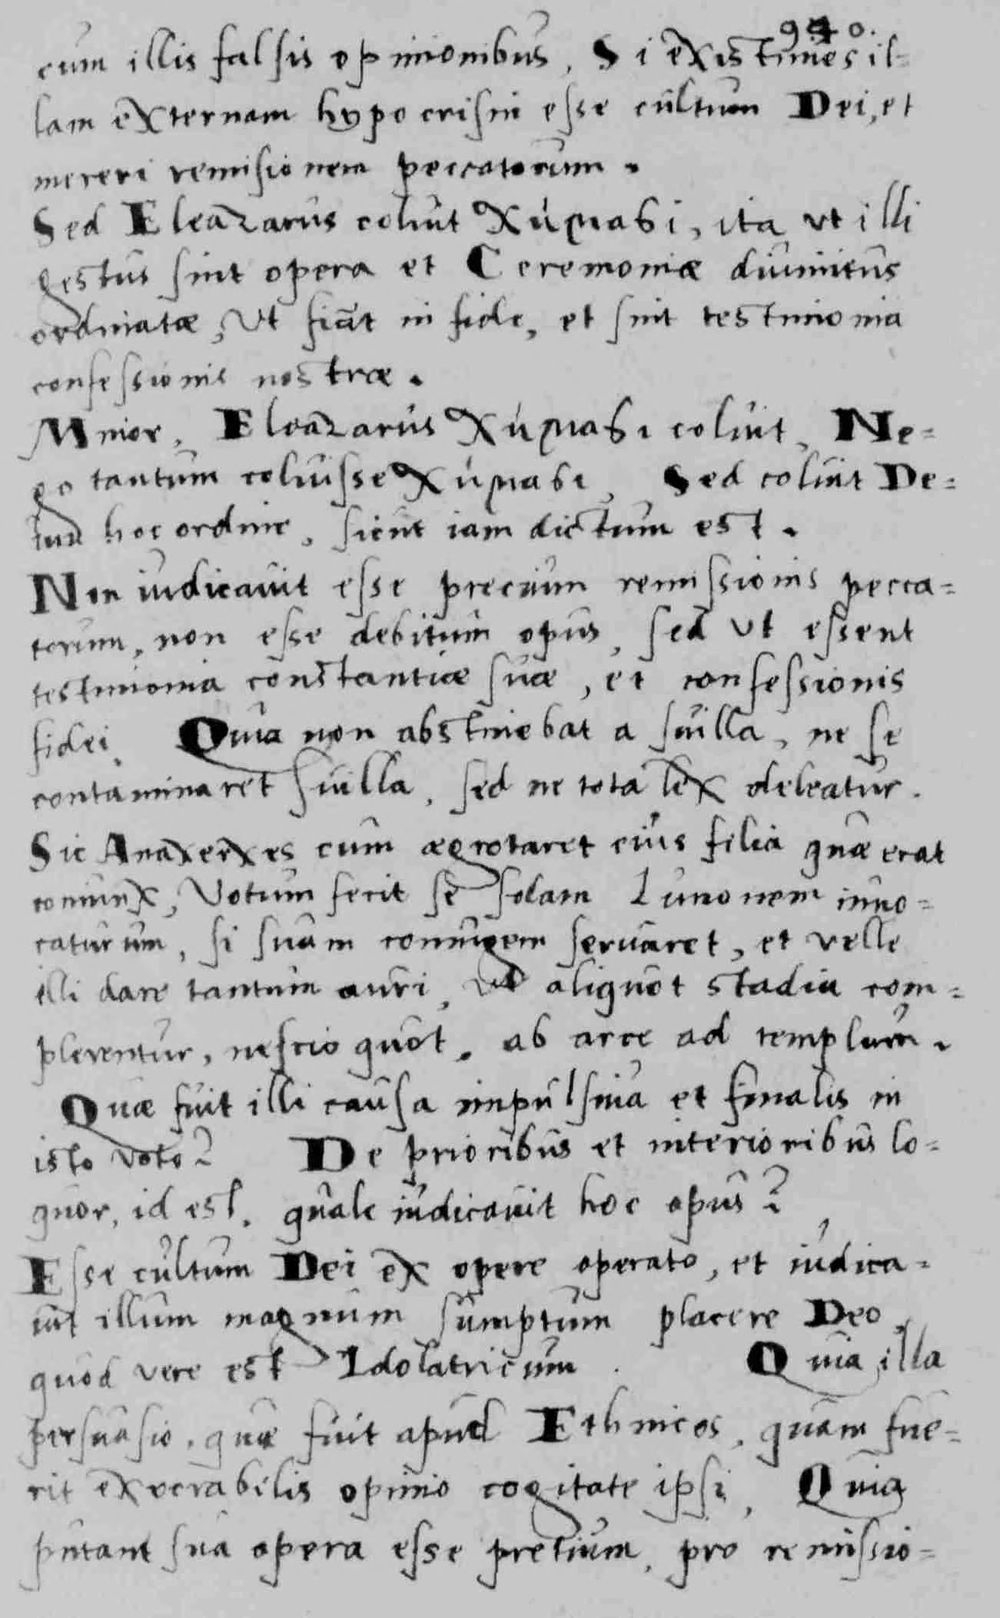 940.
cum illis falsis opinionibus, Si existimes il-
lam externam hypocrisin esse cultum Dei, et
mereri remisionem peccatorum.
Sed Eleazarus coluit ita ut illi
gestus sint opera et Ceremoniæ diuinitus
ordinatæ, Ut fiāt in fide, et sint testimonia
confessionis nostræ.
Minor, Eleazarus coluit, Ne-
go tantum coluisse Sed coluit De-
um hoc ordine, sicut iam dictum est.
Non iudicauit esse precium remissionis pecca-
torum, non esse debitum opus, sed ut essent
testimonia constantiæ suæ, et confessionis
fidei, Quia non abstinebat a suilla, ne se
contaminaret suilla, sed ne tota lex deleatur.
Sic Anaxerxes cum ægrotaret eius filia quæ erat
coniunx, Votum fecit se solam Iunonem inuo-
caturum, si suam coniugem seruaret, et velle
illi dare tantum auri, ut aliquot stadia com-
plerentur, nescio quot, ab arce ad templum.
Quæ fuit illi causa impulsiua et finalis in
isto voto? De prioribus et interioribus lo-
quor, id est, quale iudicauit hoc opus?
Esse cultum Dei ex opere operato, et iudica-
uit illum magnum sumptum placere Deo,
quod vere est Idolatricum. Quia illa
persuasio, quæ fuit apud Ethnicos, quam fue-
rit execrabilis opinio cogitate ipsi, Quia
putant sua opera esse pretium, pro remissio-